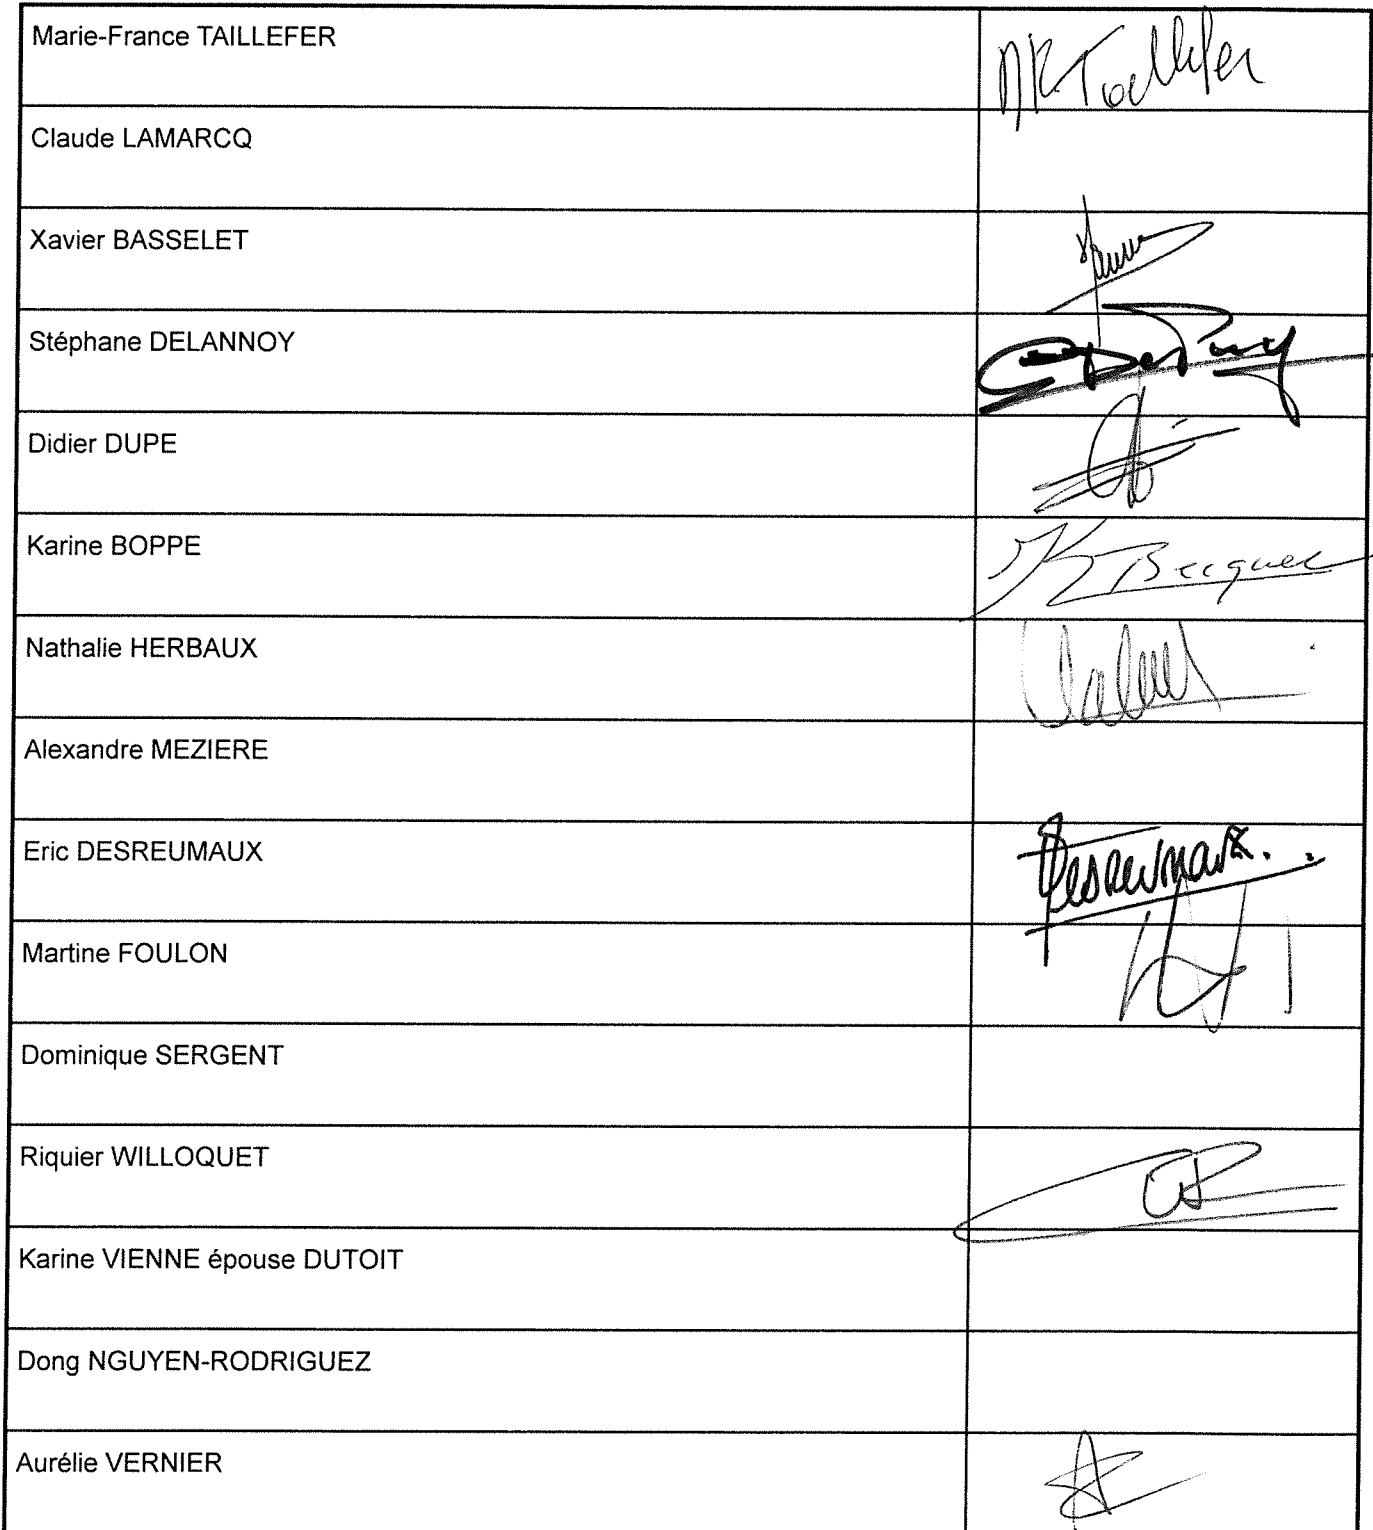 Marie-France TAILLEFER
MF Taillefer
Claude LAMARCQ
Xavier BASSELET
Stéphane DELANNOY
Didier DUPE
Karine BOPPE
Nathalie HERBAUX
Alexandre MEZIERE
Eric DESREUMAUX
Desreumaux
Martine FOULON
Dominique SERGENT
Riquier WILLOQUET
Karine VIENNE épouse DUTOIT
Dong NGUYEN-RODRIGUEZ
Aurélie VERNIER